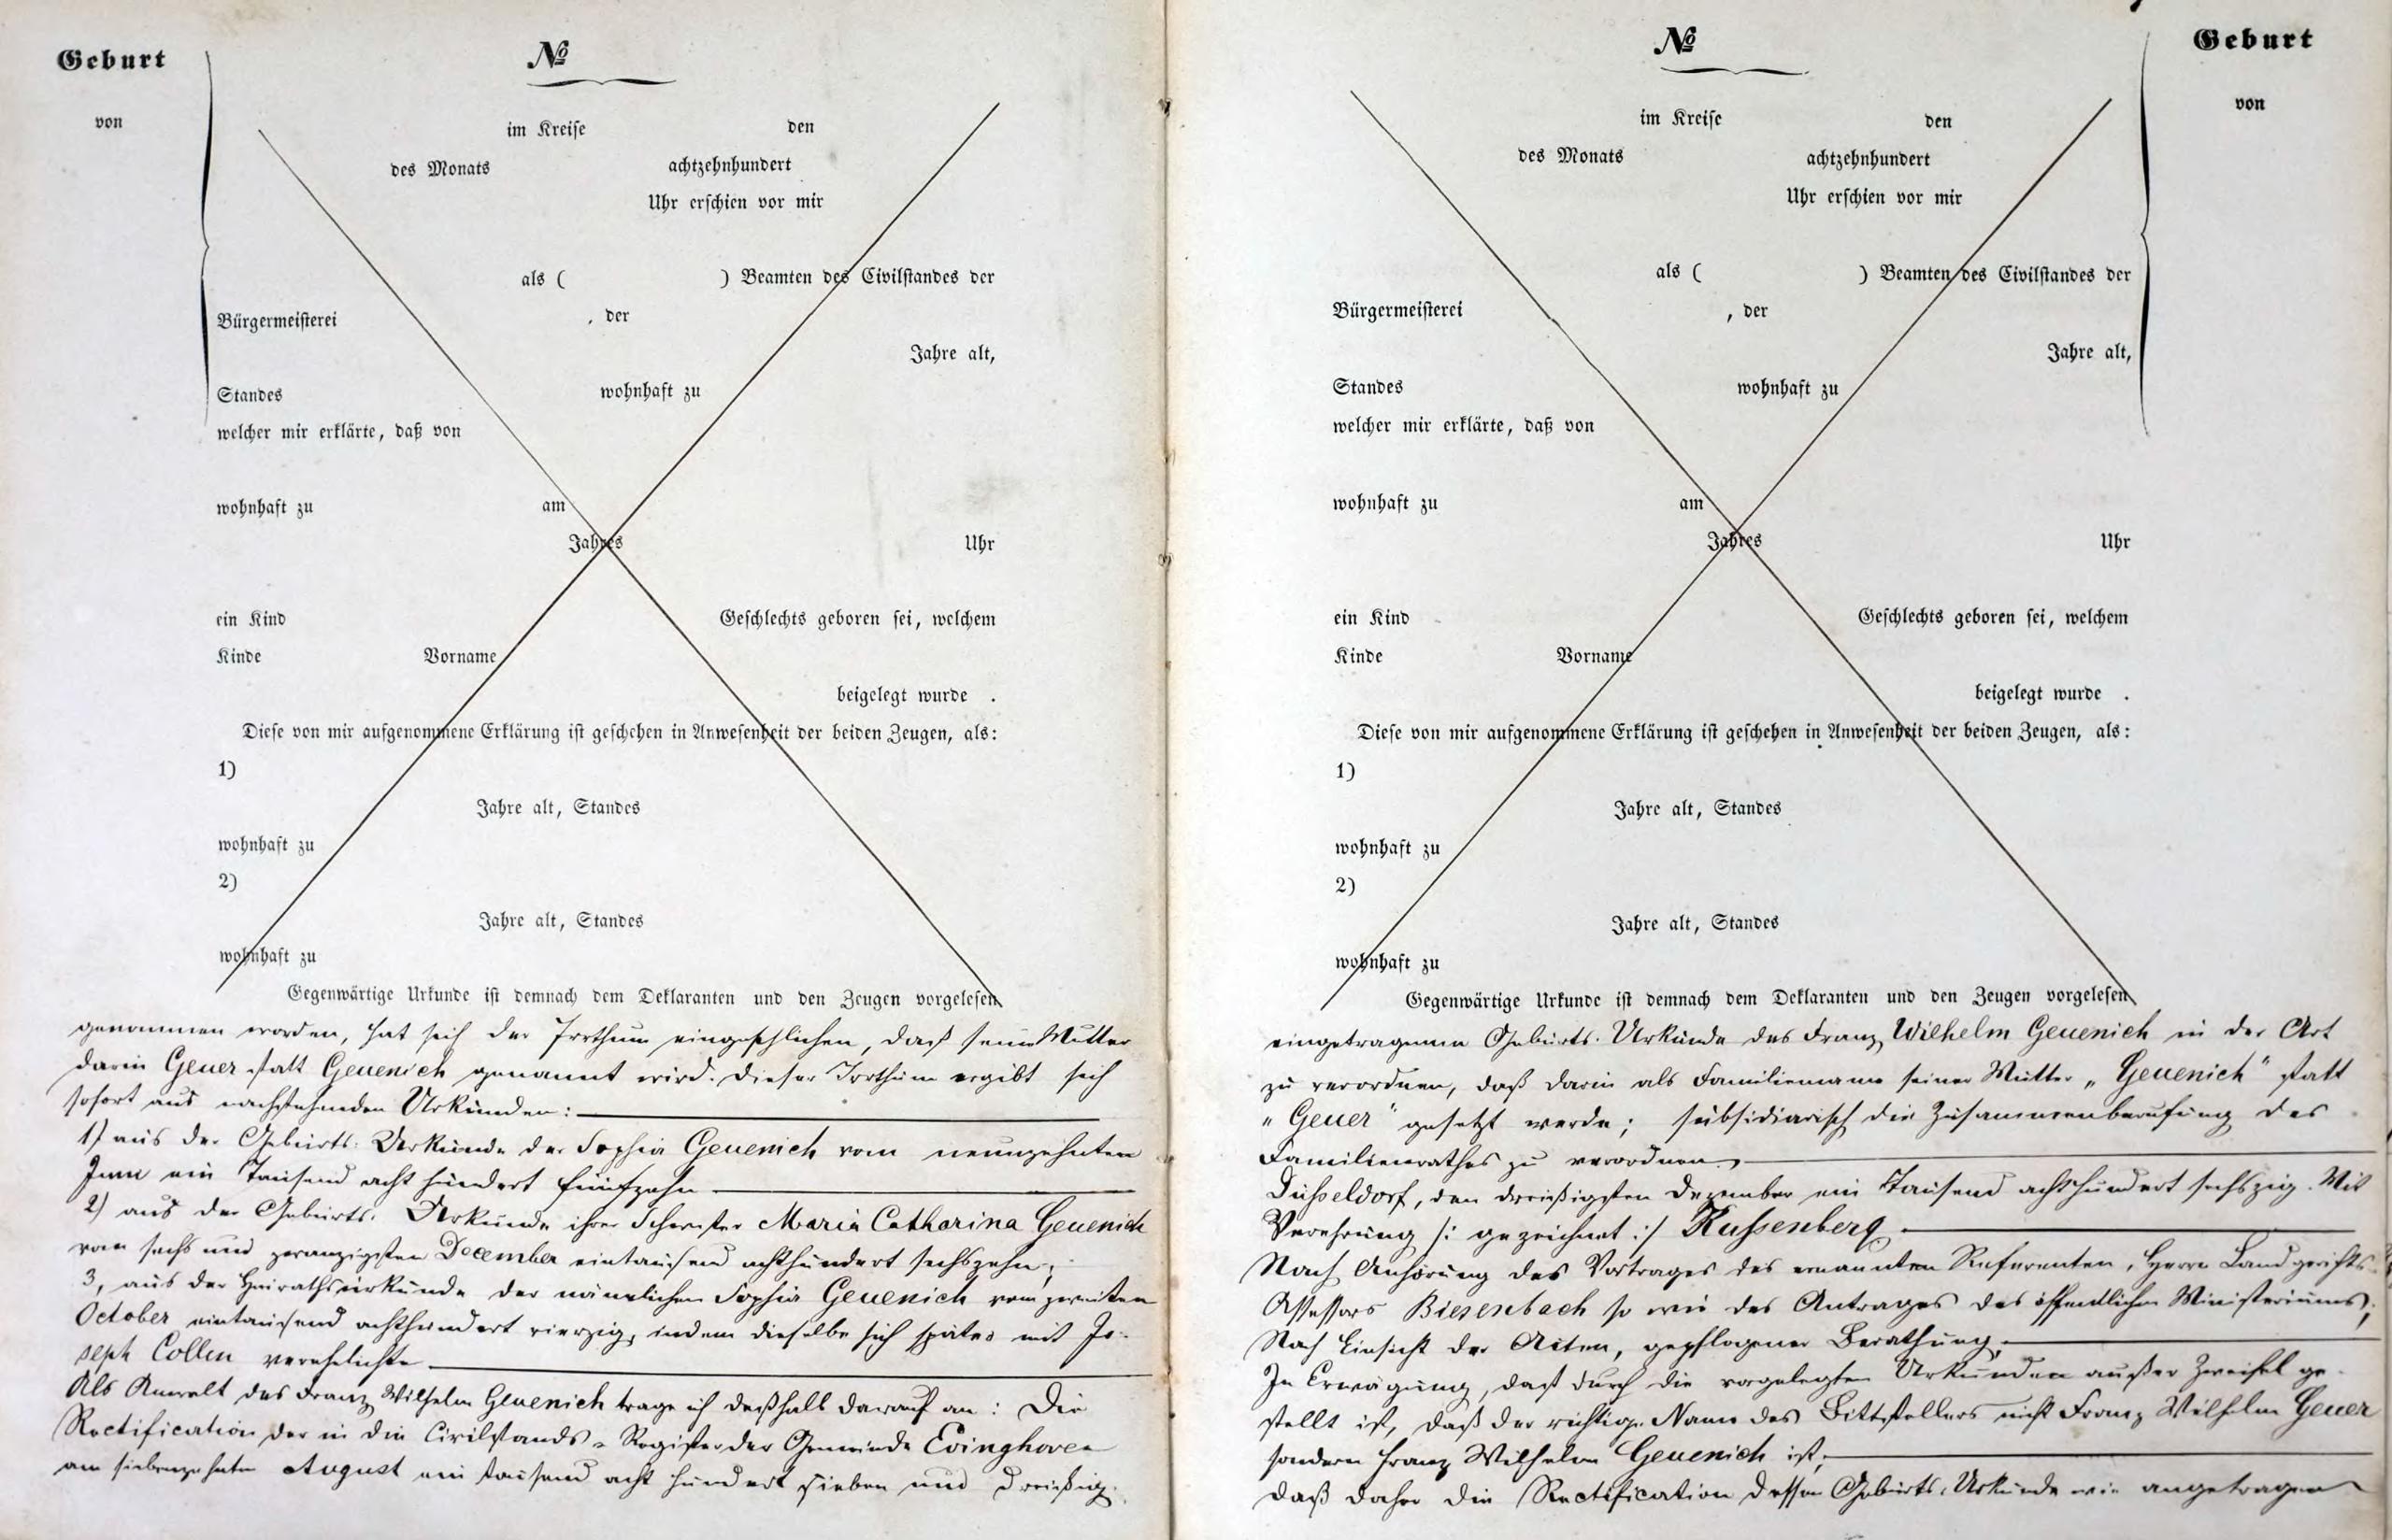 Geburt
von
№
im Kreise den
des Monats achtzehnhundert
Uhr erschien vor mir
als ( ) Beamten des Civilstandes der
Bürgermeisterei , der
Jahre alt,
Standes wohnhaft zu
welcher mir erklärte, daß von
wohnhaft zu am
Jahres Uhr
ein Kind Geschlechts geboren sei, welchem
Kinde Vorname
beigelegt wurde .
Diese von mir aufgenommene Erklärung ist geschehen in Anwesenheit der beiden Zeugen, als:
1)
Jahre alt, Standes
wohnhaft zu
2)
Jahre alt, Standes
wohnhaft zu
Gegenwärtige Urkunde ist demnach dem Deklaranten und den Zeugen vorgelesen
genommen worden, hat sich der Irrthum eingeschlichen, daß seine Mutter
darin Geuer statt Geuenich genannt wird. Dieser Irrthum ergibt sich
sofort aus nachstehenden Urkunden:
1) aus der Geburts-Urkunde der Sophia Geuenich vom neunzehnten
Juni ein Tausend acht hundert fünfzehn
2) aus der Geburts-Urkunde ihrer Schwester Maria Catharina Geuenich
vom sechs und zwanzigsten December eintausend achthundert sechszehn;
3, aus der Heirathsurkunde der nämlichen Sophia Geuenich vom zweiten
October eintausend achthundert vierzig, indem dieselbe sich später mit Jo-
seph Collen verehelichte
Als Anwalt des Franz Wilhelm Geuenich trage ich deßhalb darauf an: Die
Rectification der in die Civilstands-Register der Gemeinde Evinghoven
am siebenzehnten August ein tausend acht hundert sieben und dreißig
№
Geburt
von
im Kreise den
des Monats achtzehnhundert
Uhr erschien vor mir
als ( ) Beamten des Civilstandes der
Bürgermeisterei , der
Jahre alt,
Standes wohnhaft zu
welcher mir erklärte, daß von
wohnhaft zu am
Jahres Uhr
ein Kind Geschlechts geboren sei, welchem
Kinde Vorname
beigelegt wurde .
Diese von mir aufgenommene Erklärung ist geschehen in Anwesenheit der beiden Zeugen, als:
1)
Jahre alt, Standes
wohnhaft zu
2)
Jahre alt, Standes
wohnhaft zu
Gegenwärtige Urkunde ist demnach dem Deklaranten und den Zeugen vorgelesen
eingetragenen Geburts-Urkunde des Franz Wilhelm Geuenich in der Art
zu verordnen, daß darin als Familienname seiner Mutter „Geuenich" statt
„Geuer" gesetzt werde; subsidiarisch die Zusammenberufung des
Familienrathes zu verordnen.
Düsseldorf, den dreißigsten Dezember ein Tausend achthundert sechszig. Mit
Verehrung /: gezeichnet :/ Kussenberg
Nach Anhörung des Vortrages des ernannten Referenten, Herrn Landgerichts-
Assessors Biesenbach so wie des Antrages des öffentlichen Ministeriums;
Nach Einsicht der Akten, gepflogener Berathung,
In Erwägung, daß durch die vorgelegten Urkunden außer Zweifel ge-
stellt ist, daß der richtige Name des Bittstellers nicht Franz Wilhelm Geuer
sondern Franz Wilhelm Geuenich ist,
daß daher die Rectification dessen Geburts-Urkunde wie angetragen